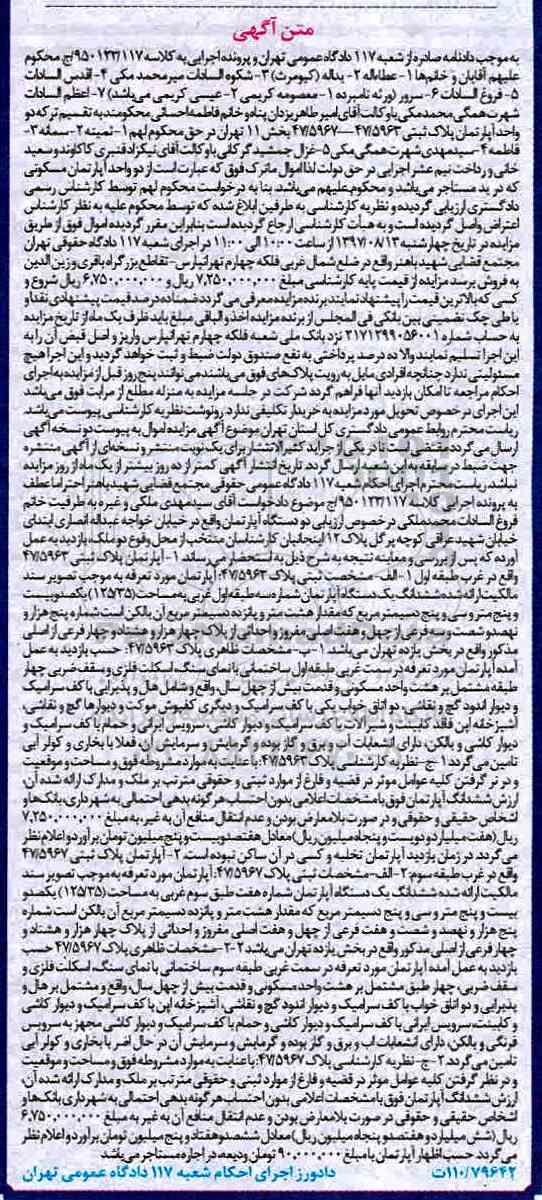 متن آگهی
به موجب دادنامه صادره از شعبه ۱۱۷ دادگاه عمومی تهران و پرونده اجرایی به کلاسه ۹۵۰۱۳۳/۱۱۷/ج محکوم
علیهم آقایان و خانم‌ها ۱- عطااله ۲- یداله (کیومرث) ۳- شکوه السادات میرمحمد مکی ۴- اقدس السادات
۵- فروغ السادات ۶- سرور (ورثه نامبرده ۱- معصومه کریمی ۲- عیسی کریمی می‌باشد) ۷- اعظم السادات
شهرت همگی محمدمکی با وکالت آقای امیر طاهر یزدان پناه و خانم فاطمه احسانی محکومند به تقسیم ترکه دو
واحد آپارتمان پلاک ثبتی ۴۷/۵۹۶۳—۴۷/۵۹۶۷ بخش ۱۱ تهران در حق محکوم لهم ۱- ثمینه ۲- سمانه ۳-
فاطمه ۴- سیدمهدی شهرت همگی مکی ۵- غزال جمشید گرکانی با وکالت آقای نیکزاد قنبری کاکاوند و سعید
خانی و پرداخت نیم عشر اجرایی در حق دولت لذا اموال ماترک فوق که عبارت است از دو واحد آپارتمان مسکونی
که در ید مستاجر می‌باشد و محکوم علیهم می‌باشد. بنا به درخواست محکوم لهم توسط کارشناس رسمی
دادگستری ارزیابی گردیده و نظریه کارشناسی به طرفین ابلاغ شده که توسط محکوم علیه به نظر کارشناس
اعتراض واصل گردیده است و به هیأت کارشناسی ارجاع گردیده است بنابراین مقرر گردیده اموال فوق از طریق
مزایده در تاریخ چهارشنبه ۱۳۹۷/۰۸/۱۳ از ساعت ۱۰:۰۰ الی ۱۱:۰۰ در اجرای شعبه ۱۱۷ دادگاه حقوقی تهران
مجتمع قضایی شهید باهنر واقع در ضلع شمال غربی فلکه چهارم تهرانپارس- تقاطع بزرگراه باقری و زین الدین
به فروش برسد مزایده از قیمت پایه کارشناسی مبلغ ۷،۲۵۰،۰۰۰،۰۰۰ ریال و ۶،۷۵۰،۰۰۰،۰۰۰ ریال شروع و
کسی که بالاترین قیمت را پیشنهاد نمایند برنده مزایده معرفی می گردد ضمنا ده درصد قیمت پیشنهادی نقدا و
یا طی چک تضمینی بین بانکی فی المجلس از برنده مزایده اخذ و الباقی مبلغ باید ظرف یک ماه از تاریخ مزایده
به حساب شماره ۲۱۷۱۲۹۹۰۵۶۰۰۱ نزد بانک ملی شعبه فلکه چهارم تهرانپارس واریز و اصل قبض آن را به
این اجرا تسلیم نمایند والا ده درصد پرداختی به نفع صندوق دولت ضبط و ثبت خواهد گردید و این اجرا هیچ
مسئولیتی ندارد چنانچه افرادی مایل به رویت پلاک‌های فوق می‌باشند می‌توانند پنج روز قبل از مزایده به اجرای
احکام مراجعه تا امکان بازدید آنها فراهم گردد شرکت در جلسه مزایده به منزله مطلع از مراتب فوق می‌باشد
این اجرای در خصوص تحویل مورد مزایده به خریدار تکلیفی ندارد. رونوشت نظریه کارشناسی پیوست می‌باشد.
ریاست محترم روابط عمومی دادگستری کل استان تهران موضوع آگهی مزایده اموال به پیوست دو نسخه آگهی
ارسال می گردد مقتضی است تا در یکی از جراید کثیرالانتشار برای یک نوبت منتشر و نسخه‌ای از آگهی منتشره
جهت ضبط در سابقه به این شعبه ارسال گردد. تاریخ انتشار آگهی کمتر از ده روز بیشتر از یک ماه از روز مزایده
نباشد. ریاست محترم اجرای احکام شعبه ۱۱۷ دادگاه عمومی حقوقی مجتمع قضایی شهید باهنر احتراما عطف
به پرونده اجرایی کلاسه ۹۵۰۱۳۳/۱۱۷/ج موضوع دادخواست آقای سیدمهدی ملکی و غیره به طرفیت خانم
فروغ السادات محمدملکی در خصوص ارزیابی دو دستگاه آپارتمان واقع در خیابان خواجه عبداله انصاری ابتدای
خیابان شهید عراقی کوچه پرگل پلاک ۱۲ اینجانبان کارشناسان منتخب از محل وقوع دو ملک، بازدید به عمل
آورده که پس از بررسی و معاینه نتیجه به شرح ذیل به استحضار می‌رساند. ۱- آپارتمان پلاک ثبتی ۴۷/۵۹۶۳
واقع در غرب طبقه اول ۱-الف- مشخصت ثبتی پلاک ۴۷/۵۹۶۳: آپارتمان مورد تعرفه به موجب تصویر سند
مالکیت ارائه شده ششدانگ یک دستگاه آپارتمان شماره سه طبقه اول غربی به مساحت (۱۲۵/۳۵) یکصد و بیست
و پنج متر و سی و پنج دسیمتر مربع که مقدار هشت متر و پانزده دسیمتر مربع آن بالکن است شماره پنج هزار و
نهصد و شصت و سه فرعی از چهل و هفت اصلی مفروز و احداثی از پلاک چهار هزار و هشتاد و چهار فرعی از اصلی
مذکور واقع در بخش یازده تهران می‌باشد. ۱-ب- مشخصات ظاهری پلاک ۴۷/۵۹۶۳: حسب بازدید به عمل
آمده آپارتمان مورد تعرفه در سمت غربی طبقه اول ساختمانی با نمای سنگ، اسکلت فلزی و سقف ضربی چهار
طبقه مشتمل بر هشت واحد مسکونی و قدمت بیش از چهل سال، واقع و شامل هال و پذیرایی با کف سرامیک
و دیوار اندود گچ و نقاشی، دو اتاق خواب یکی با کف سرامیک و دیگری کفپوش موکت و دیوارها گچ و نقاشی،
آشپزخانه اپن فاقد کابینت و شیرآلات با کف سرامیک و دیوار کاشی، سرویس ایرانی و حمام با کف سرامیک و
دیوار کاشی و بالکن، دارای انشعابات آب و برق و گاز بوده و گرمایش و سرمایش آن، فعلا با بخاری و کولر آبی
تامین می‌گردد ۱-ج- نظریه کارشناسی پلاک ۴۷/۵۹۶۳: با عنایت به موارد مشروطه فوق و مساحت و موقعیت
و در نظر گرفتن کلیه عوامل موثر در قضیه و فارغ از موارد ثبتی و حقوقی مترتب بر ملک و مدارک ارائه شده آن،
ارزش ششدانگ آپارتمان فوق با مشخصات اعلامی بدون احتساب هرگونه بدهی احتمالی به شهرداری، بانک‌ها و
اشخاص حقیقی و حقوقی و در صورت بلامعارض بودن و عدم انتقال منافع آن به غیر، به مبلغ ۷،۲۵۰،۰۰۰،۰۰۰
ریال (هفت میلیارد و دویست و پنجاه میلیون ریال) معادل هفتصد و بیست و پنج میلیون تومان برآورد و اعلام نظر
می‌گردد. در زمان بازدید آپارتمان تخلیه و کسی در آن ساکن نبوده است. ۲- آپارتمان پلاک ثبتی ۴۷/۵۹۶۷
واقع در غرب طبقه سوم: ۲-الف- مشخصات ثبتی پلاک ۴۷/۵۹۶۷: آپارتمان مورد تعرفه به موجب تصویر سند
مالکیت ارائه شده ششدانگ یک دستگاه آپارتمان شماره هفت طبق سوم غربی به مساحت (۱۲۵/۳۵) یکصد و
بیست و پنج متر و سی و پنج دسیمتر مربع که مقدار هشت متر و پانزده دسیمتر مربع آن بالکن است شماره
پنج هزار و نهصد و شصت و هفت فرعی از چهل و هفت اصلی مفروز و احداثی از پلاک چهار هزار و هشتاد و
چهار فرعی از اصلی مذکور واقع در بخش یازده تهران می‌باشد ۲-۲- مشخصات ظاهری پلاک ۴۷/۵۹۶۷ حسب
بازدید به عمل آمده آپارتمان مورد تعرفه در سمت غربی طبقه سوم ساختمانی با نمای سنگ، اسکلت فلزی و
سقف ضربی، چهار طبق مشتمل بر هشت واحد مسکونی و قدمت بیش از چهل سال، واقع و مشتمل بر هال و
پذیرایی و دو اتاق خواب با کف سرامیک و دیوار اندود گچ و نقاشی، آشپزخانه اپن با کف سرامیک و دیوار کاشی
و کابینت، سرویس ایرانی با کف سرامیک و دیوار کاشی و حمام با کف سرامیک و دیوار کاشی مجهز به سرویس
فرنگی و بالکن، دارای انشعابات آب و برق و گاز بوده و گرمایش و سرمایش آن در حال اضر با بخاری و کولر آبی
تامین می‌گردد. ۲-ج- نظریه کارشناسی پلاک ۴۷/۵۹۶۷: با عنایت به موارد مشروطه فوق و مساحت و موقعیت
و در نظر گرفتن کلیه عوامل موثر در قضیه و فارغ از موارد ثبتی و حقوقی مترتب بر ملک و مدارک ارائه شده آن،
ارزش ششدانگ آپارتمان فوق با مشخصات اعلامی بدون احتساب هرگونه بدهی احتمالی به شهرداری بانک‌ها و
اشخاص حقیقی و حقوقی در صورت بلامعارض بودن و عدم انتقال منافع آن به غیر به مبلغ ۶،۷۵۰،۰۰۰،۰۰۰
ریال (شش میلیارد و هفتصد و پنجاه میلیون ریال) معادل ششصد و هفتاد و پنج میلیون تومان برآورد و اعلام نظر
می گردد. حسب اظهار آپارتمان با مبلغ ۹۰،۰۰۰،۰۰۰ تومان ودیعه، در اجاره مستاجر می‌باشد
۱۱۰/۷۹۶۴۲ت دادورز اجرای احکام شعبه ۱۱۷ دادگاه عمومی تهران